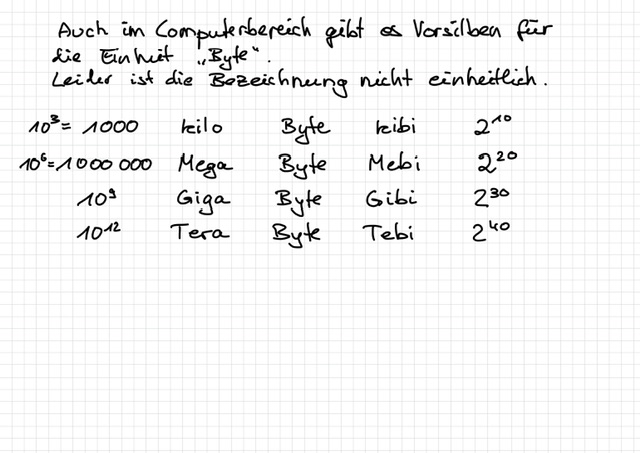 Auch im Computerbereich gibt es Vorsilben für
die Einheit „Byte".
Leider ist die Bezeichnung nicht einheitlich.
10³ = 1000 kilo Byte kibi 2¹⁰
10⁶ = 1000 000 Mega Byte Mebi 2²⁰
10⁹ Giga Byte Gibi 2³⁰
10¹² Tera Byte Tebi 2⁴⁰